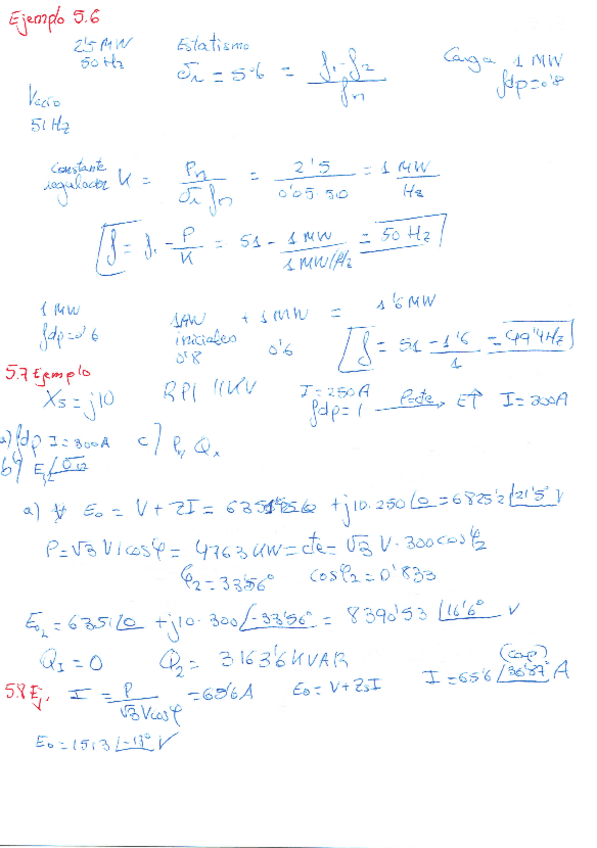 Ejemplo 5.6
2'5 MW
50 Hz
Estatismo
σr = 5% = f1-f2 / fn
Carga 1 MW
fdp=0'8
Vacío
51 Hz
Constante regulador K = Pn / σr fn = 2'5 / 0'05·50 = 1 MW / Hz
f = f1 - P / K = 51 - 1 MW / 1 MW/Hz = 50 Hz
1 MW
fdp=0'6
1MW iniciales 0'8 + 1 MW 0'6 = 1'6 MW
f = 51 - 1'6 / 1 = 49'4Hz
5.7 Ejemplo
Xs = j10 RPI 11KV I = 250A
fdp=1 P=cte E↑ I = 300A
a) fdp I = 300A c) P, Q
b)
a) E0 = V + ZI = + j10·250∠0 = 6825'2∠21'5° V
P = √3 V I cosφ = 4763 KW = cte = √3 V·300cosφ2
φ2 = 33'56° cosφ2 = 0'833
E02 = 6351∠0 + j10·300∠-33'56° = 8390'53∠16'6° V
Q1 = 0 Q2 = 3163'6 KVAR
5.8 Ej. I = P / √3 V cosφ = 65'6 A E0 = V + ZsI I = 65'6∠36'87° A
(cap)
E0 = 1513∠-13° V